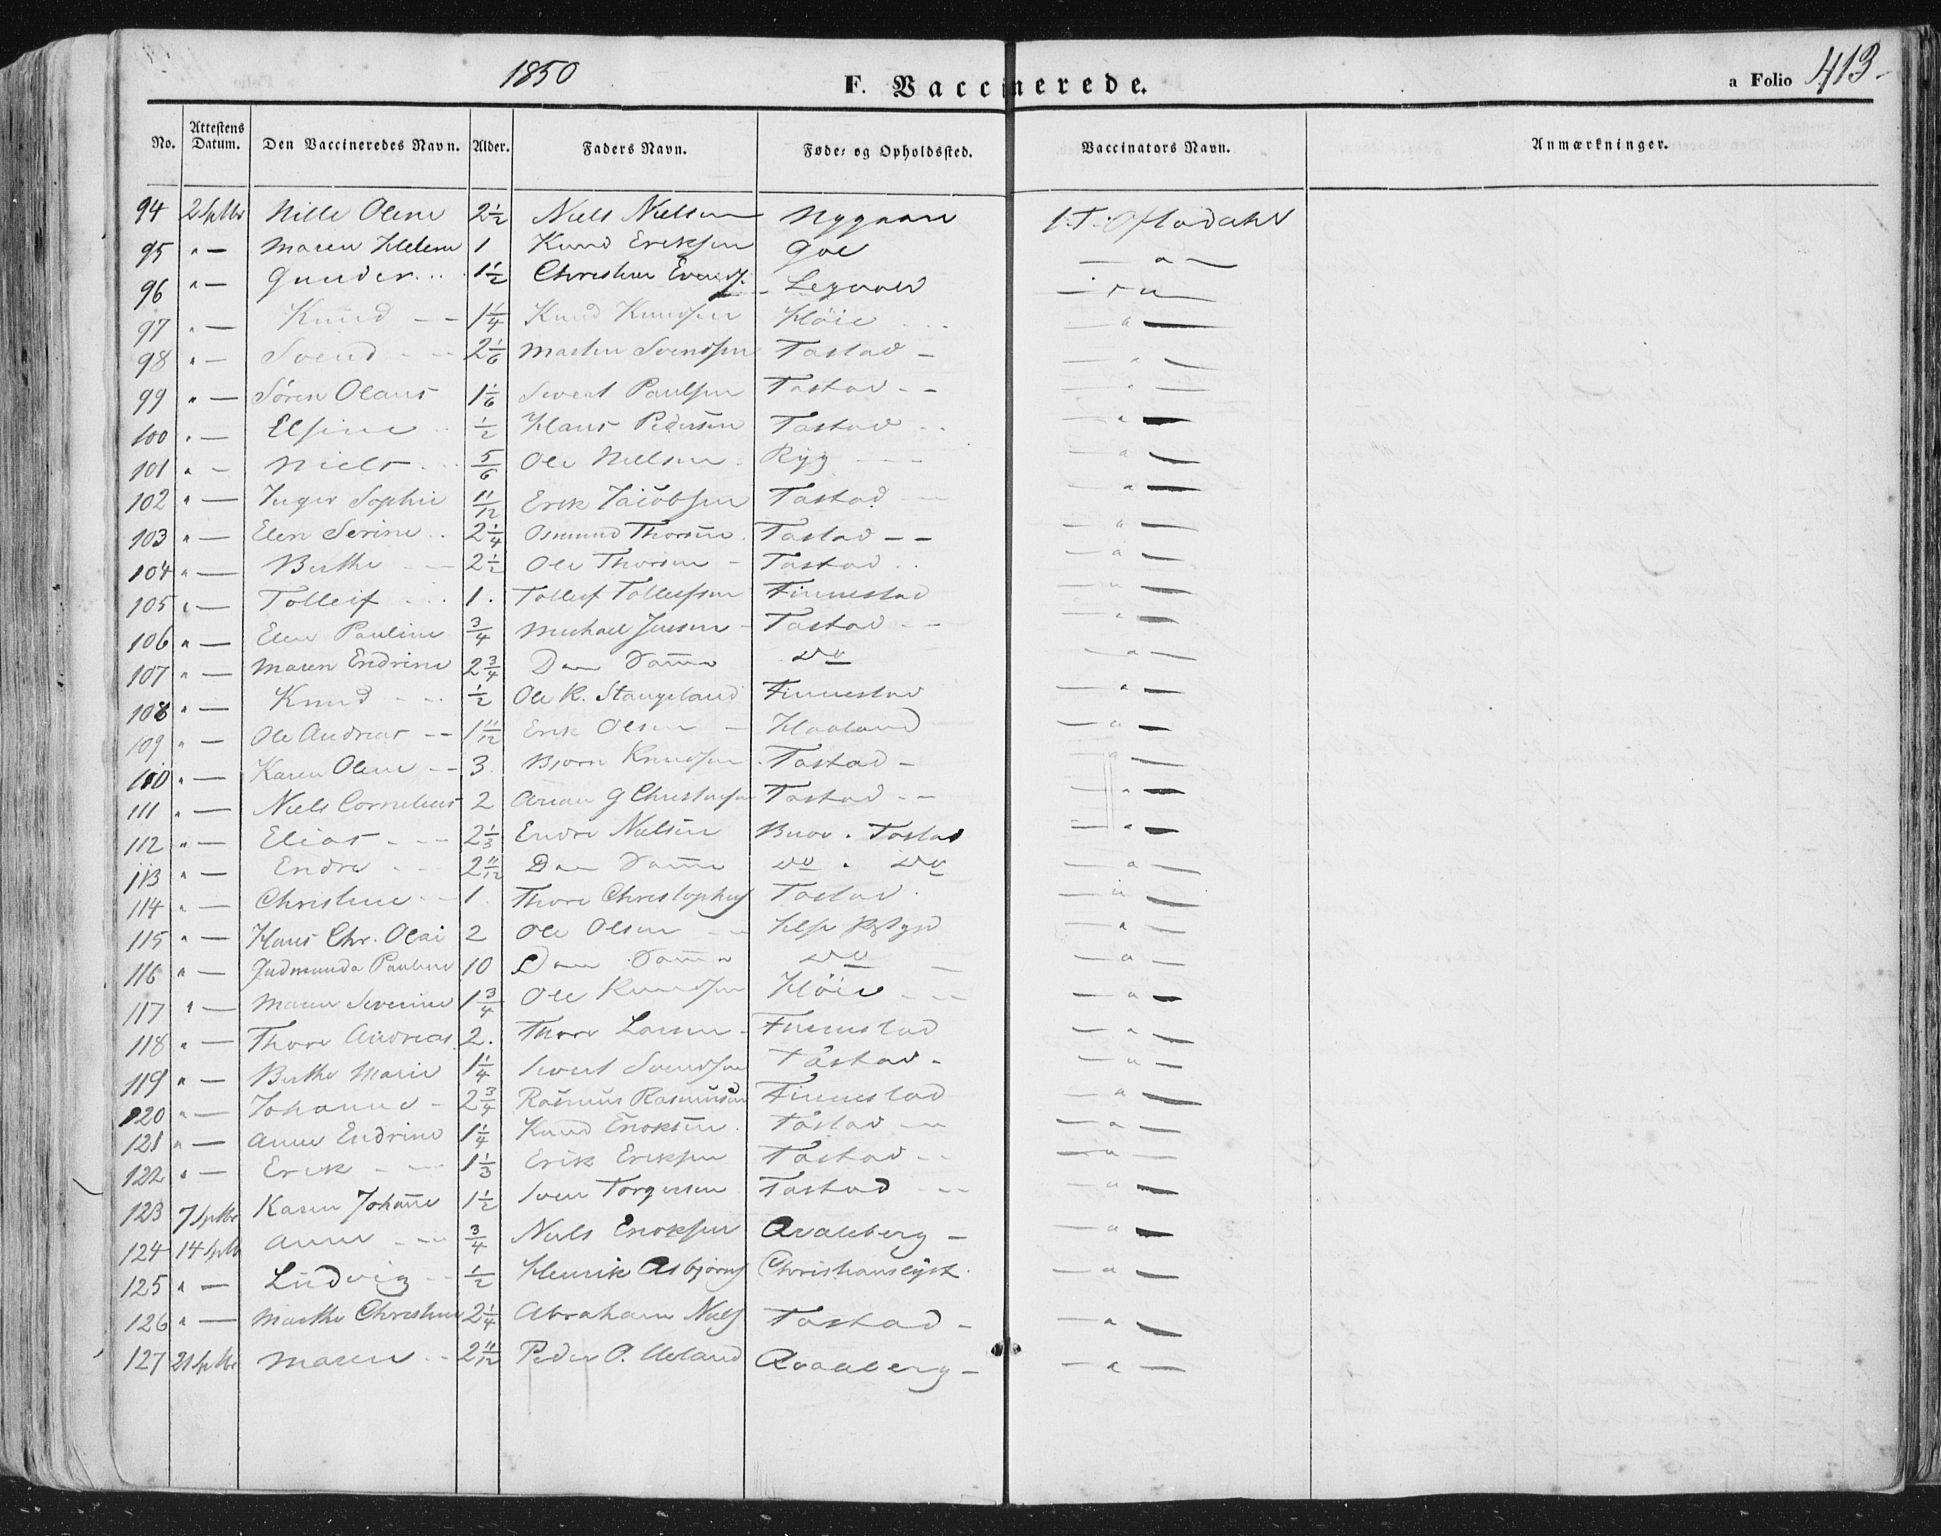 1850 F. Vaccinerede. a Folio 413.
No. Attestens Datum. Den Vaccineredes Navn. Alder. Faders Navn. Føde- og Opholdssted. Vaccinators Navn. Anmærkninger.
94 2 Sptbr Nille Olene 2½ Niels Nielsen
95 " — Maren Helene 1 Knud Eriksen Goe — " —
96 " — Gunder 1½ Christian — " —
97 " — Knud — 1¼ Knud Knudsen Høie — " —
98 " — Svend — 2 1/6 Svendsen Tastad — — " —
99 " — Søren Olaus 1 1/6 Sivert Paulsen Tastad — — " —
100 " — Elsine ½ Hans Pedersen Tastad — " —
101 " — Niels 5/6 Ole Nielsen Ryg — — " —
102 " — Inger Sophie 11/12 Erik Jacobsen Tastad — — " —
103 " — Elen Serine 2¼ Osmund Thorsen Tastad — — — " —
104 " — Berthe — 2½ Ole Thorsen — Tastad — " —
105 " — Tolleif 1 Tollef Tollefsen Finnestad — " —
106 " — Elen Pauline ¾ Michael Jensen Tastad — — " —
107 " — Maren Endrine 2¾ Den Samme do — " —
108 " — Knud — ½ Ole K. Stangeland Finnestad — " —
109 " — Ole Andreas — 1 11/12 Erik Olsen — Haaland — " —
110 " — Karen Olene — 3 Bjørn Knudsen Tastad — — " —
111 " — Niels Cornelius 2 Tastad — — " —
112 " — Elias — 2⅓ Endre Nielsen Tastad — " —
113 " — Endre — 2 11/12 Den Samme do " do — " —
114 " — Christine — 1 Thore Christophers Tastad — " —
115 " — Hans Chr. Olai 2 Ole Olsen — " —
116 " — Gudmunda Pauline 10 Den Samme do — — " —
117 " — Maren Severine 1¾ Ole Knudsen Høie — — " —
118 " — Thore Andreas 2. Thore Larsen Finnestad — " —
119 " — Berthe Marie 1¼ Sivert Svendsen Tastad — — " —
120 " — Johanne — 2¾ Rasmus Rasmussen Finnestad — " —
121 " — Anne Endrine 1¼ Knud Enoksen Tastad — — " —
122 " — Erik — 1⅓ Erik Eriksen Tastad — — " —
123 7 Sptbr Karen Johanne 1½ Sven Torgersen Tastad — — " —
124 14 Sptb Anne — ¾ Niels Enoksen Qvaleberg — — " —
125 " — Ludvig — ½ Henrik Asbjørns Christianslyst — " —
126 " — Marthe Christine 2¼ Abraham Niels Tastad — — " —
127 21 Sptbr Maren — 2 11/12 Peder O. Ueland Qvaleberg — — " —